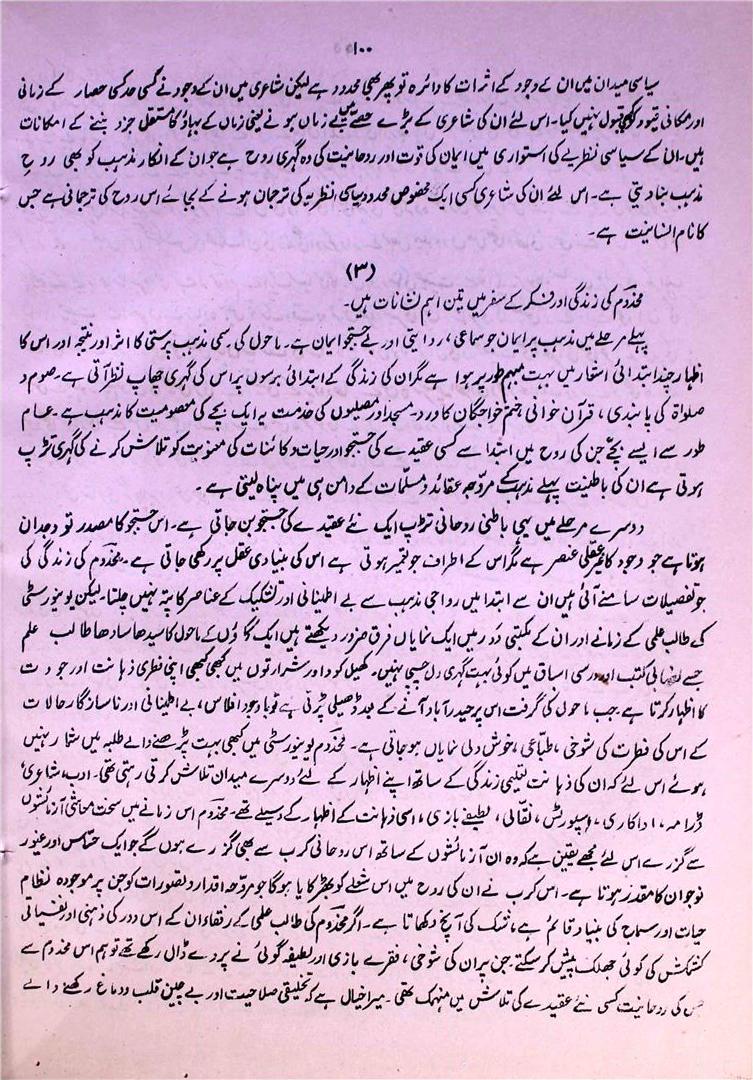 ۱۰۰
سیاسی میدان میں ان کے وجود کے اثرات کا دائرہ تو پھر بھی محدود ہے لیکن شاعری میں ان کے وجود نے کسی حد کسی حصار کے زمانی
اور مکانی قیود کو بھی قبول نہیں کیا۔ اس لئے ان کی شاعری کے بڑے حصے میں بے زماں ہونے یعنی زماں کے بہاؤ کا مستقل جزو بننے کے امکانات
ہیں۔ ان کے سیاسی نظریے کی استواری میں ایمان کی قوت اور روحانیت کی وہ گہری روح ہے جو ان کے انکار مذہب کو بھی روحِ
مذہب بنا دیتی ہے۔ اس لئے ان کی شاعری کسی ایک مخصوص محدود سیاسی نظریہ کی ترجمان ہونے کے بجائے اس روح کی ترجمانی ہے جس
کا نام انسانیت ہے۔
(۳)
مخدوم کی زندگی اور فکر کے سفر میں تین اہم نشانات ہیں۔
پہلے مرحلے میں مذہب پر ایمان جو سماعی، روایتی اور بے جستجو ایمان ہے۔ ماحول کی رسمی مذہب پرستی کا اثر اور نتیجہ اور اس کا
اظہار چند ابتدائی اشعار میں بہت مبہم طور پر ہوا ہے مگر ان کی زندگی کے ابتدائی برسوں پر اس کی گہری چھاپ نظر آتی ہے۔ صوم و
صلواۃ کی پابندی، قرآن خوانی ختم خواجگان کا ورد۔ مسجد اور مصلیوں کی خدمت یہ ایک بچے کی معصومیت کا مذہب ہے۔ عام
طور سے ایسے بچے جن کی روح میں ابتدا سے کسی عقیدے کی جستجو اور حیات و کائنات کی معنویت کو تلاش کرنے کی گہری تڑپ
ہوتی ہے ان کی باطنیت پہلے مذہب کے مروجہ عقائد و مسلمات کے دامن ہی میں پناہ لیتی ہے۔
دوسرے مرحلے میں یہی باطنی روحانی تڑپ ایک نئے عقیدے کی جستجو بن جاتی ہے۔ اس جستجو کا مصدر تو وجدان
ہوتا ہے جو وجود کا غیر عقلی عنصر ہے مگر اس کے اطراف جو تعمیر ہوتی ہے اس کی بنیاد ہی عقل پر رکھی جاتی ہے۔ مخدوم کی زندگی کی
جو تفصیلات سامنے آئی ہیں ان سے ابتدا میں رواجی مذہب سے بے اطمینانی اور تشکیک کے عناصر کا پتہ نہیں چلتا۔ لیکن یونیورسٹی
کی طالب علمی کے زمانے اور ان کے مکتبی دور میں ایک نمایاں فرق ضرور دیکھتے ہیں ایک گاؤں کے ماحول کا سیدھا سادھا طالب علم
جسے نصابی کتب اور درسی اسباق میں کوئی بہت گہری دل چسپی نہیں۔ کھیل کود اور شرارتوں میں کبھی کبھی اپنی فطری ذہانت اور جودت
کا اظہار کرتا ہے۔ جب ماحول کی گرفت اس پر حیدرآباد آنے کے بعد ڈھیلی پڑتی ہے تو باوجود افلاس، بے اطمینانی اور ناسازگار حالات
کے اس کی فطرت کی شوخی، طباعی، خوش دلی نمایاں ہو جاتی ہے۔ مخدوم یونیورسٹی میں کبھی بہت پڑھنے والے طلبہ میں شمار نہیں
ہوئے اس لئے کہ ان کی ذہانت تعلیمی زندگی کے ساتھ اپنے اظہار کے لئے دوسرے میدان تلاش کرتی رہتی تھی۔ ادب، شاعری،
ڈرامہ، اداکاری، اسپورٹس، نقالی، لطیفے بازی، اسی ذہانت کے اظہار کے وسیلے تھے۔ مخدوم اس زمانے میں سخت معاشی آزمائشوں
سے گزرے اس لئے مجھے یقین ہے کہ وہ ان آزمائشوں کے ساتھ اس روحانی کرب سے بھی گزرے ہوں گے جو ایک حساس اور غیور
نوجوان کا مقدر ہوتا ہے۔ اس کرب نے ان کی روح میں اس شعلے کو بھڑکایا ہوگا جو مروجہ اقدار و تصورات کو جن پر موجودہ نظام
حیات اور سماج کی بنیاد قائم ہے، شک کی آنچ دکھاتا ہے۔ اگر مخدوم کی طالب علمی کے رفقاء ان کے اس دور کی ذہنی اور نفسیاتی
کشمکش کی کوئی جھلک پیش کر سکتے۔ جن پر ان کی شوخی، فقرے بازی اور لطیفہ گوئی نے پردے ڈال رکھے تھے تو ہم اس مخدوم سے
جس کی روحانیت کسی نئے عقیدے کی تلاش میں منہمک تھی۔ میرا خیال ہے کہ تخلیقی صلاحیت اور بے چین قلب و دماغ رکھنے والے